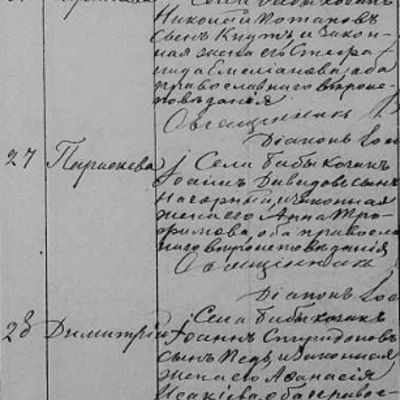 Села Бабы козакъ
Николай Потаповъ
сынъ Кнутъ и закон-
ная жена его Стефа-
нида Емельянова, оба
православнаго вѣроис-
повѣданія
Священникъ
Діаконъ
27 Параскева Села Бабы козакъ
Іоаннъ Давидовъ сынъ
Нагорный и законная
жена его Анна Тро-
фимова, оба правосла-
внаго вѣроисповѣданія
Священникъ
Діаконъ
28 Димитрій Села Бабы козакъ
Іоаннъ Спиридоновъ
сынъ и законная
жена его Афанасія
Исакіева, оба правос-